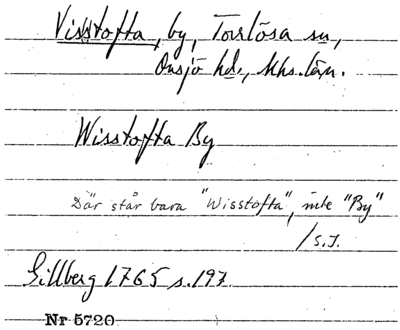 Visstofta, by, Torrlösa sn,
Onsjö hd., Mhs. län.
Wisstofta By
Där står bara "Wisstofta", inte "By"
/S.J.
Gillberg 1765 s. 197
Nr 5720